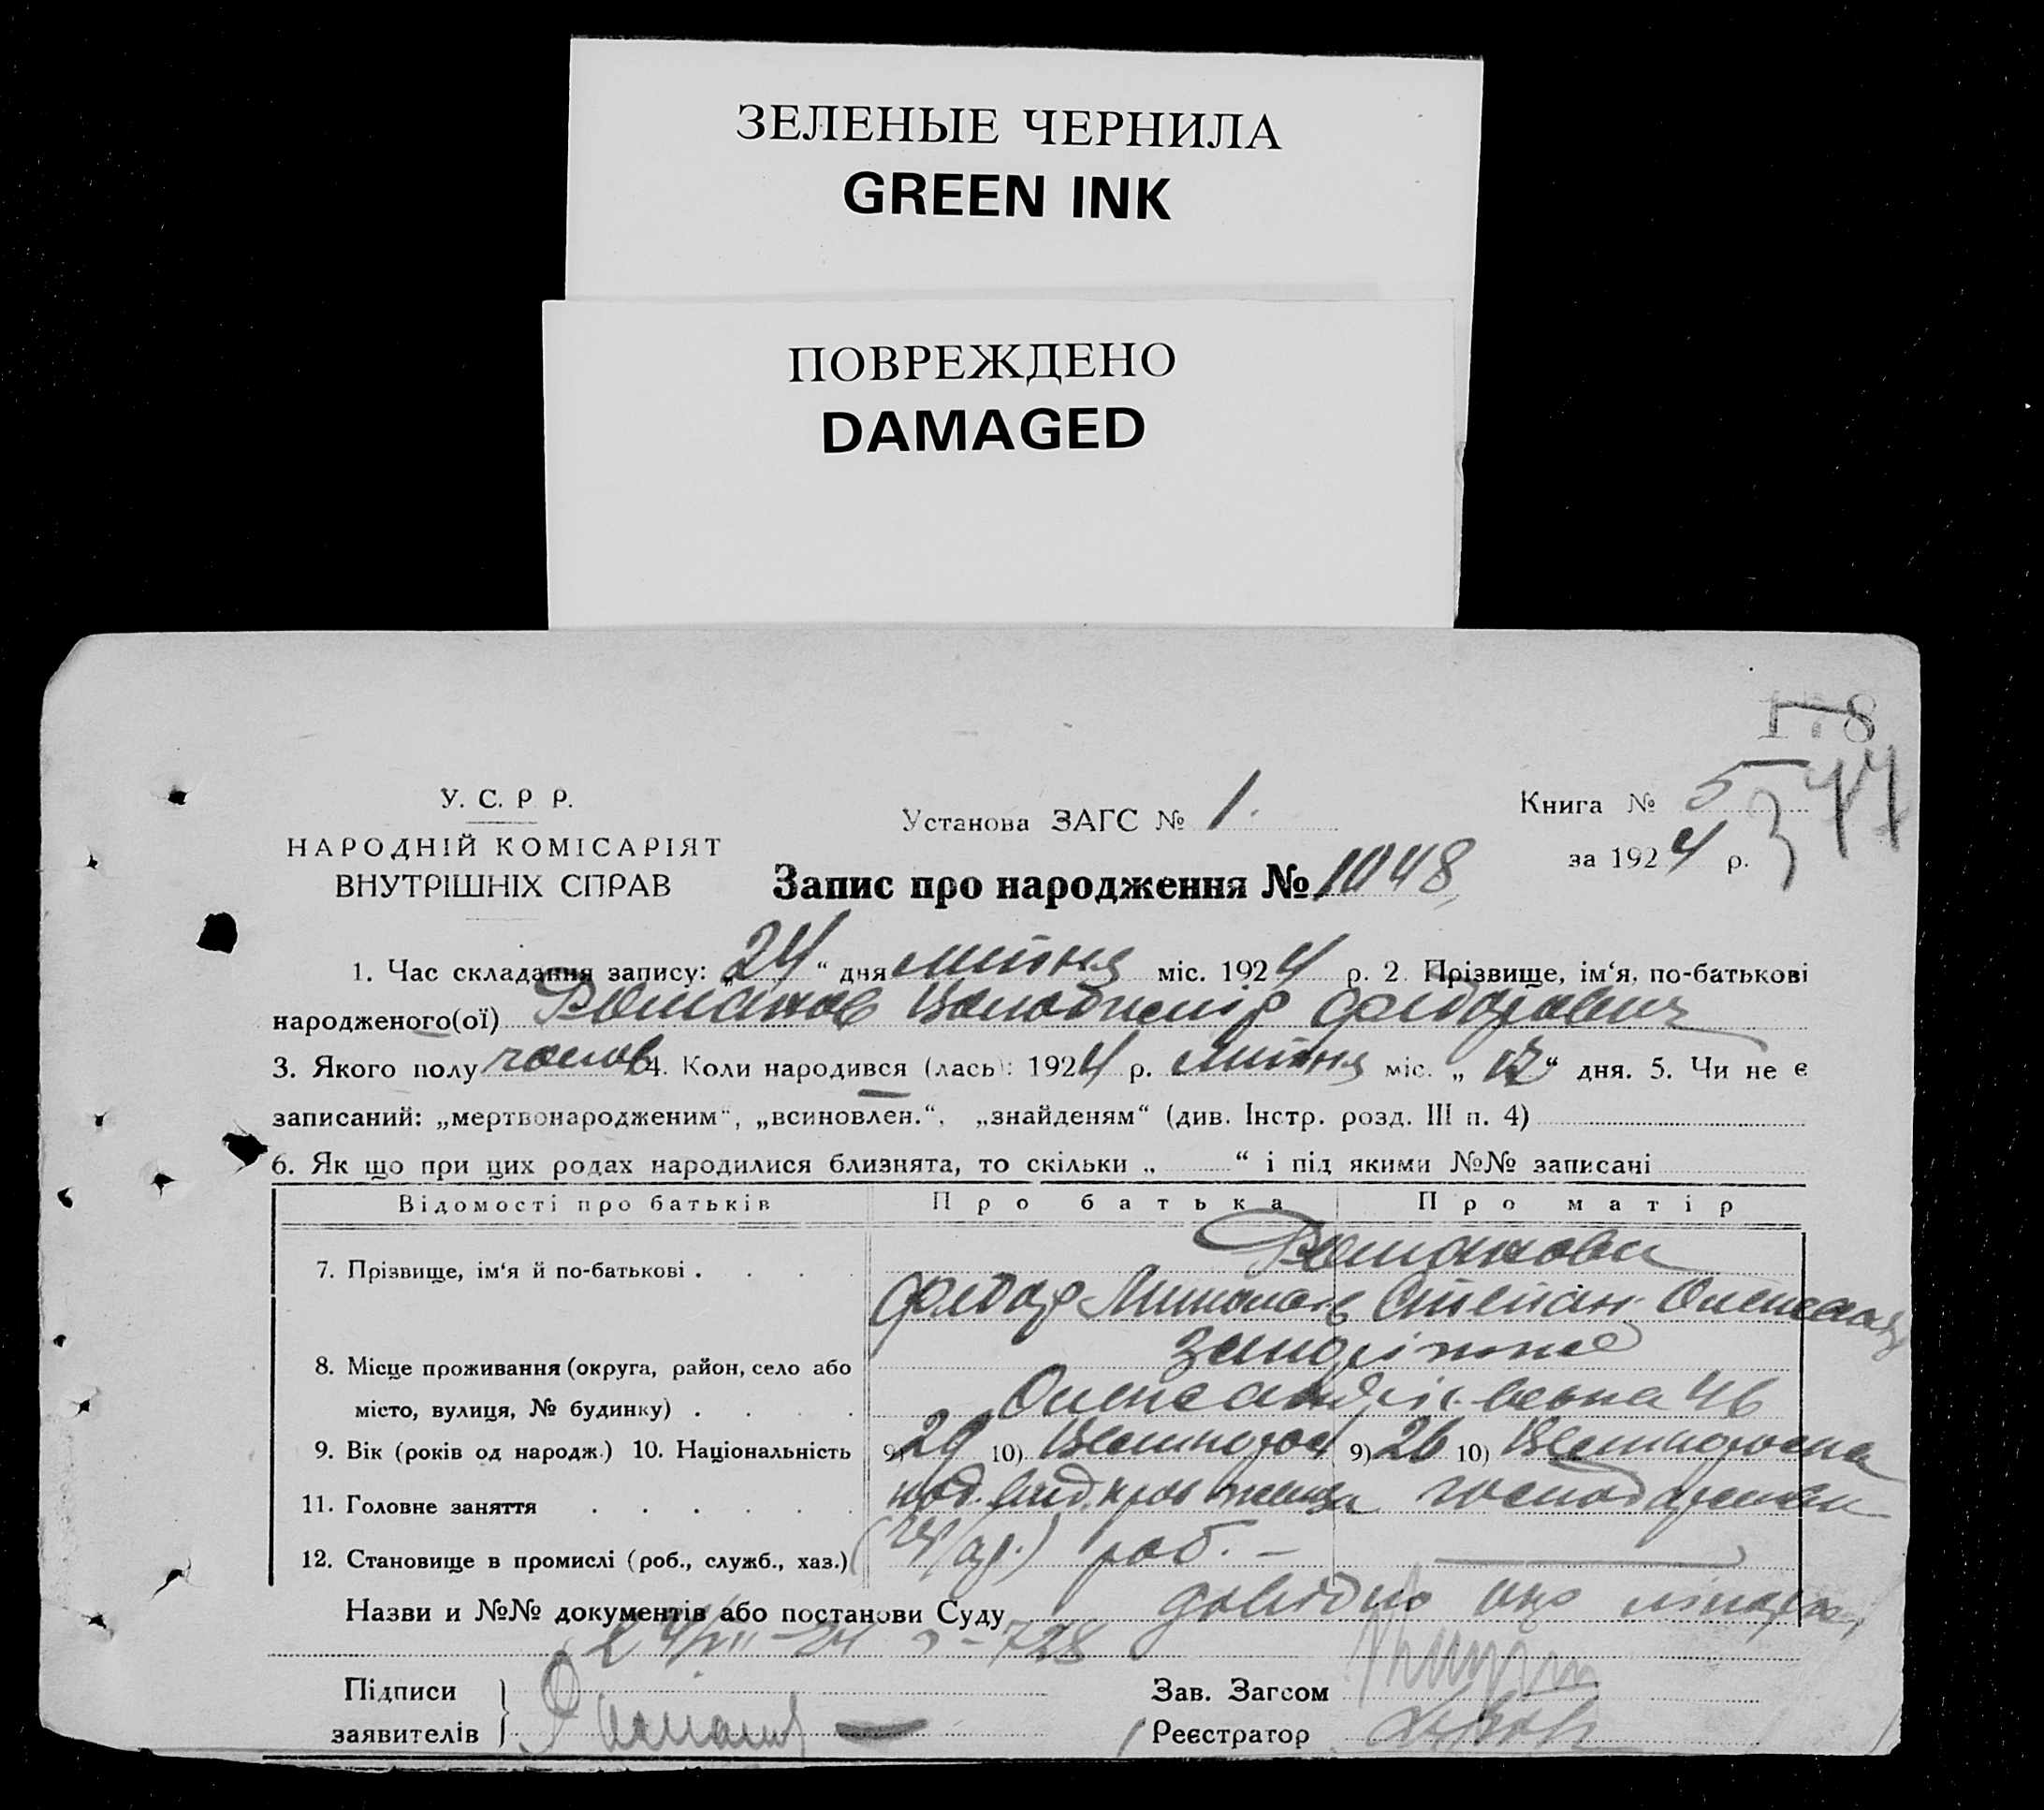 ЗЕЛЕНЫЕ ЧЕРНИЛА
GREEN INK
ПОВРЕЖДЕНО
DAMAGED
178
У. С. Р Р.
НАРОДНІЙ КОМІСАРІЯТ
ВНУТРІШНІХ СПРАВ
Установа ЗАГС № 1.
Книга № 5
за 1924 р.
Запис про народження № 1048
1. Час складання запису: „24“ дня липня міс. 1924 р. 2. Прізвище, ім‘я, по-батькові
народженого(ої) Романов Володимір Федорович
3. Якого полу чолов 4. Коли народився (лась): 1924 р. липня міс. „12“ дня. 5. Чи не є
записаний: „мертвонародженим“, „всиновлен.“, „знайденям“ (див. Інстр. розд. III п. 4)
6. Як що при цих родах народилися близнята, то скільки „ “ і під якими №№ записані
Відомості про батьків Про батька Про матір
7. Прізвище, ім‘я й по-батькові . . . . Романови
Федор Миколаїв
8. Місце проживання (округа, район, село або
місто, вулиця, № будинку) . . . . Олександрівська 46
9. Вік (років од народж.) 10. Національність 9) 29 10) Великорос 9) 26 10) Великороска
11. Головне заняття . . . . . господарка
12. Становище в промислі (роб., служб., хаз.) роб. –
Назви и №№ документів або постанови Суду довідка
24/VII-24 728
Підписи
заявителів
Романов
Зав. Загсом
Реєстратор